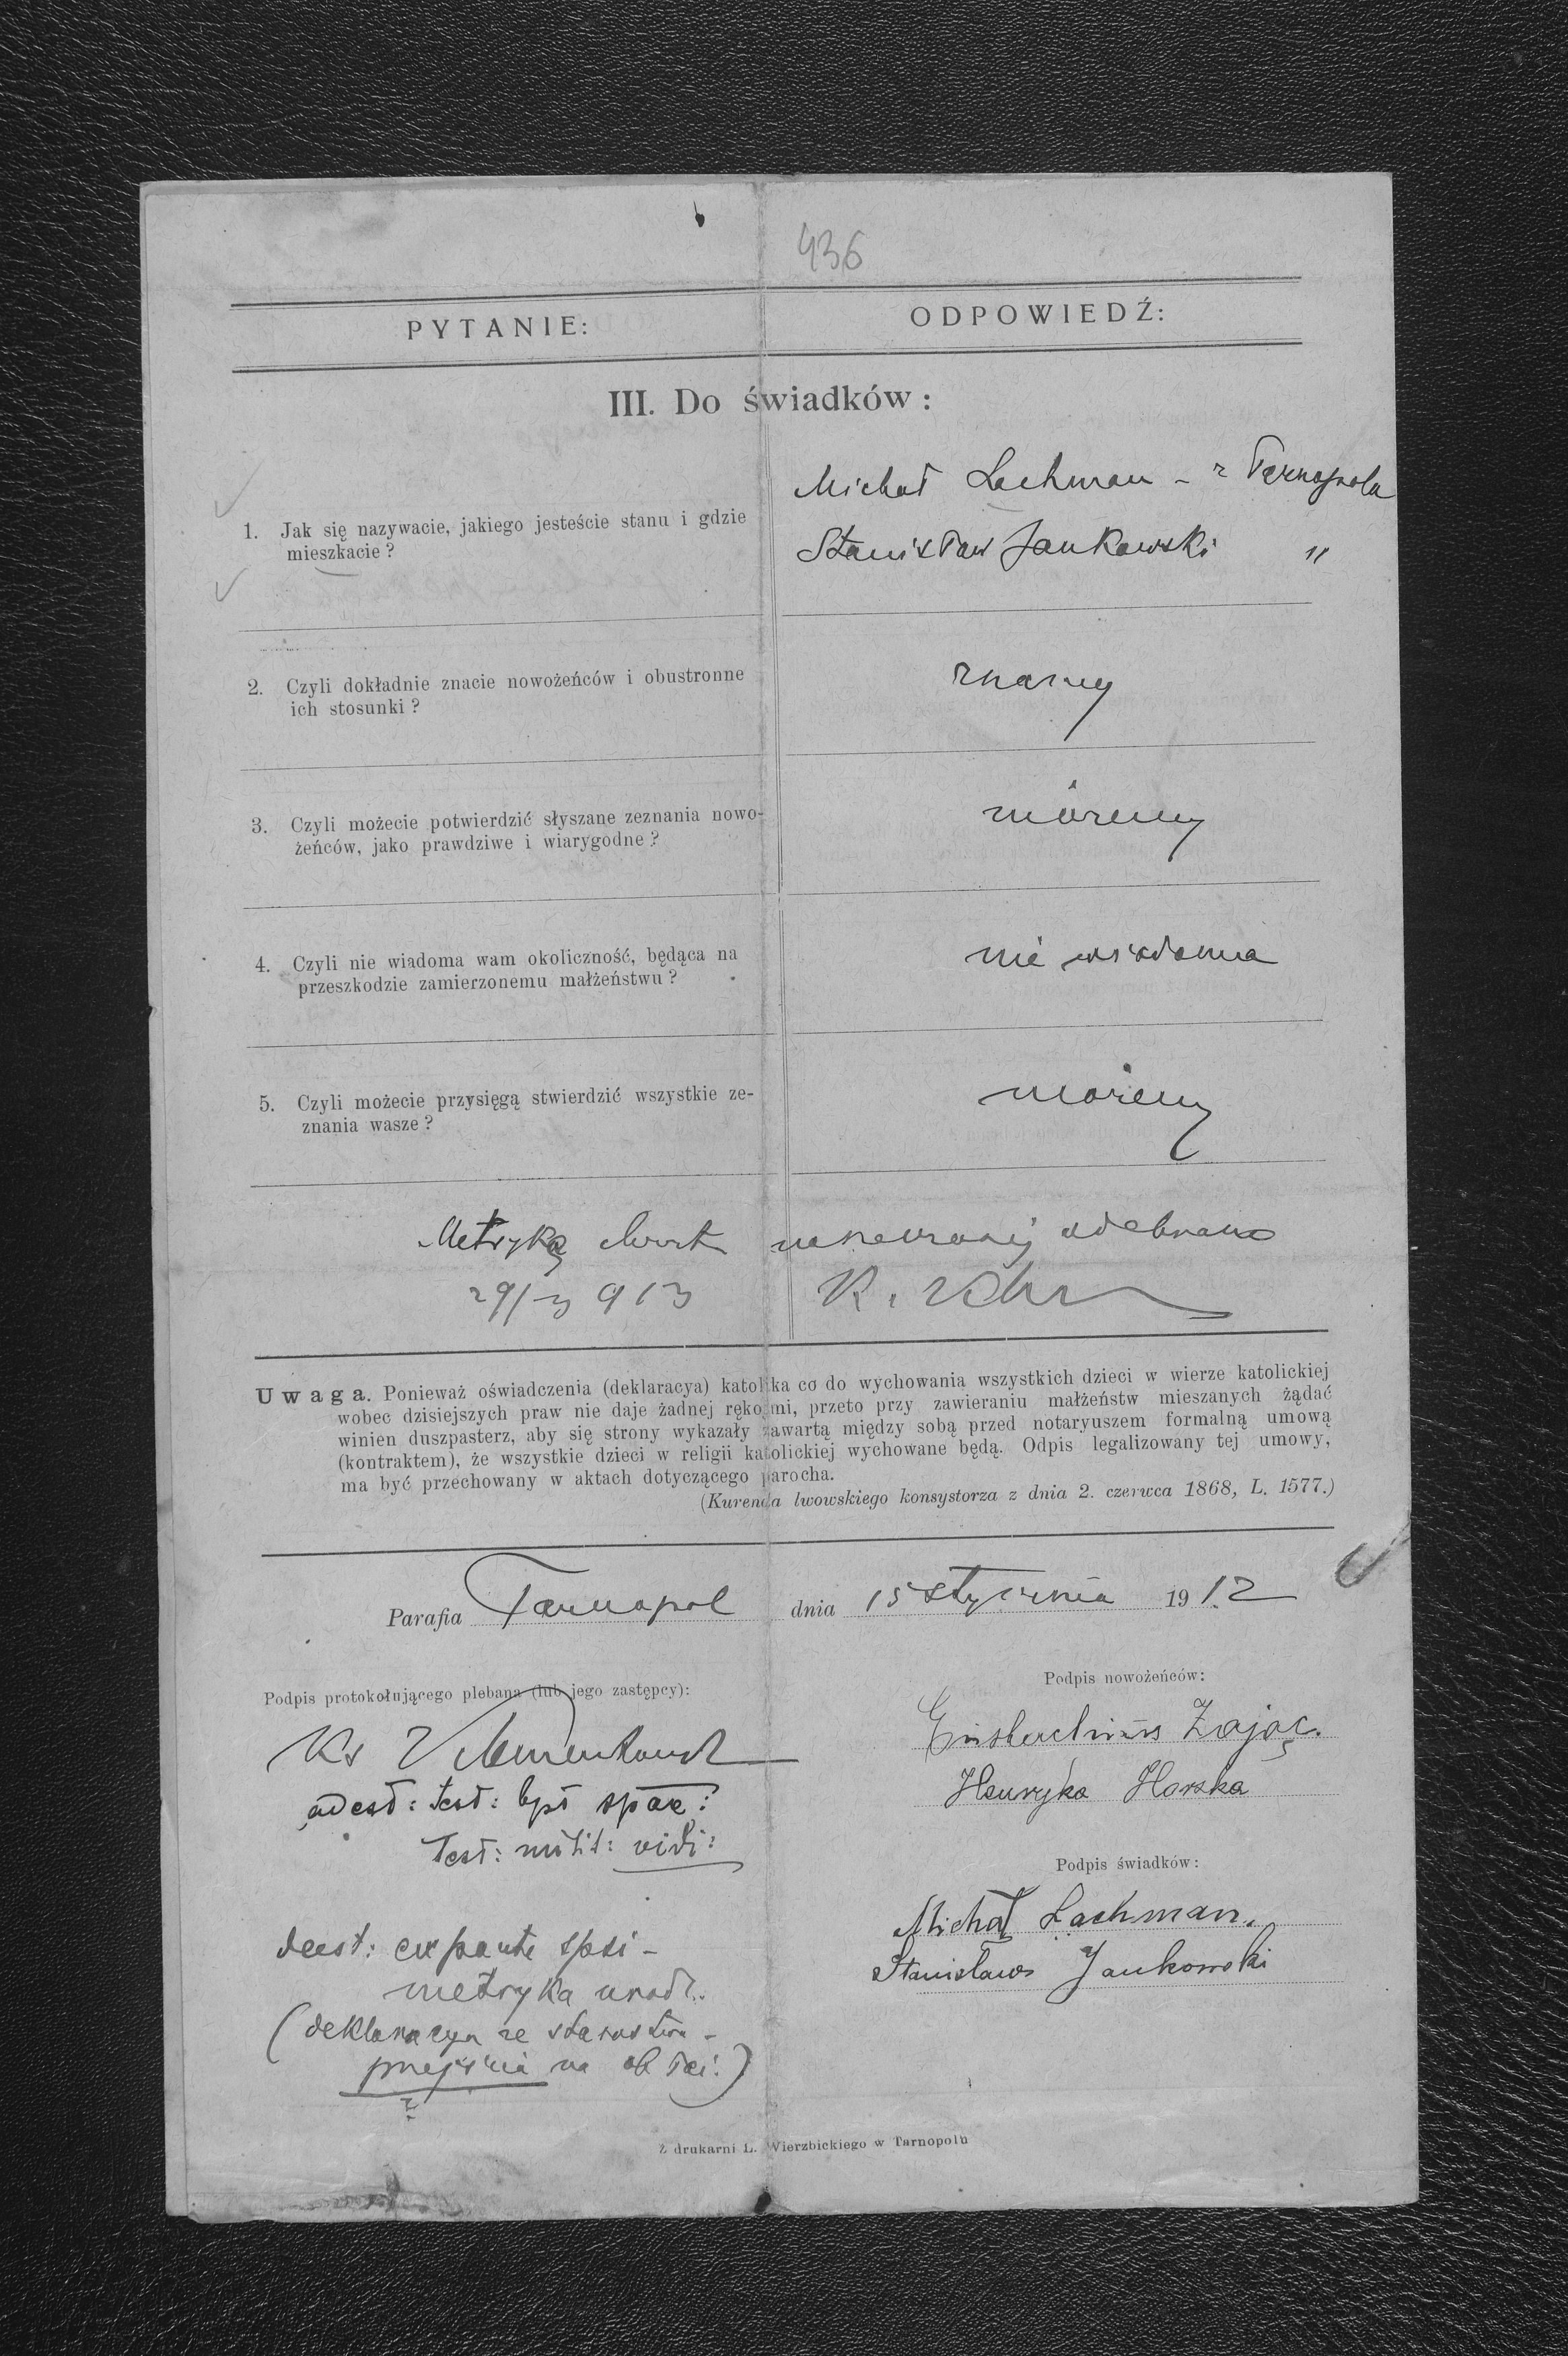 436
PYTANIE:
ODPOWIEDŹ:
III. Do świadków:
1. Jak się nazywacie, jakiego jesteście stanu i gdzie
mieszkacie?
Michał Lachman - z Tarnopola
Stanisław Jankowski "
2. Czyli dokładnie znacie nowożeńców i obustronne
ich stosunki?
znamy
3. Czyli możecie potwierdzić słyszane zeznania nowo-
żeńców, jako prawdziwe i wiarygodne?
możemy
4. Czyli nie wiadoma wam okoliczność, będąca na
przeszkodzie zamierzonemu małżeństwu?
nie wiadoma
5. Czyli możecie przysięgą stwierdzić wszystkie ze-
znania wasze?
możemy
Metrykę odebrano
913
Uwaga. Ponieważ oświadczenia (deklaracya) katolika co do wychowania wszystkich dzieci w wierze katolickiej
wobec dzisiejszych praw nie daje żadnej rękojmi, przeto przy zawieraniu małżeństw mieszanych żądać
winien duszpasterz, aby się strony wykazały zawartą między sobą przed notaryuszem formalną umową
(kontraktem), że wszystkie dzieci w religii katolickiej wychowane będą. Odpis legalizowany tej umowy,
ma być przechowany w aktach dotyczącego parocha.
(Kurenda lwowskiego konsystorza z dnia 2. czerwca 1868, L. 1577.)
Parafia Tarnopol dnia 15 stycznia 1912
Podpis protokołującego plebana (lub jego zastępcy):
Ks
adest: test: spae:
Test: milit: vidi:
deest: ex parte spsi -
metryka urodz.
(deklaracya ze starostwa -
przejścia na ob łać:)
Podpis nowożeńców:
Eustachius Zając.
Henryka Horska
Podpis świadków:
Michał Lachman.
Stanisław Jankowski
Z drukarni L. Wierzbickiego w Tarnopolu